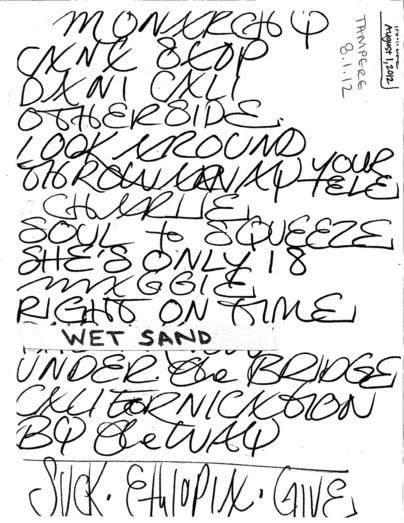 MONARCHY
CAN'T STOP
DANI CALI
OTHERSIDE
LOOK AROUND
THROW AWAY YOUR TELE
CHARLIE
SOUL to SQUEEZE
SHE'S ONLY 18
MAGGIE
RIGHT ON TIME
WET SAND
UNDER the BRIDGE
CALIFORNICATION
BY the WAY
SUCK · ETHIOPIA · GIVE
TAMPERE
8.1.12
August 1, 2012